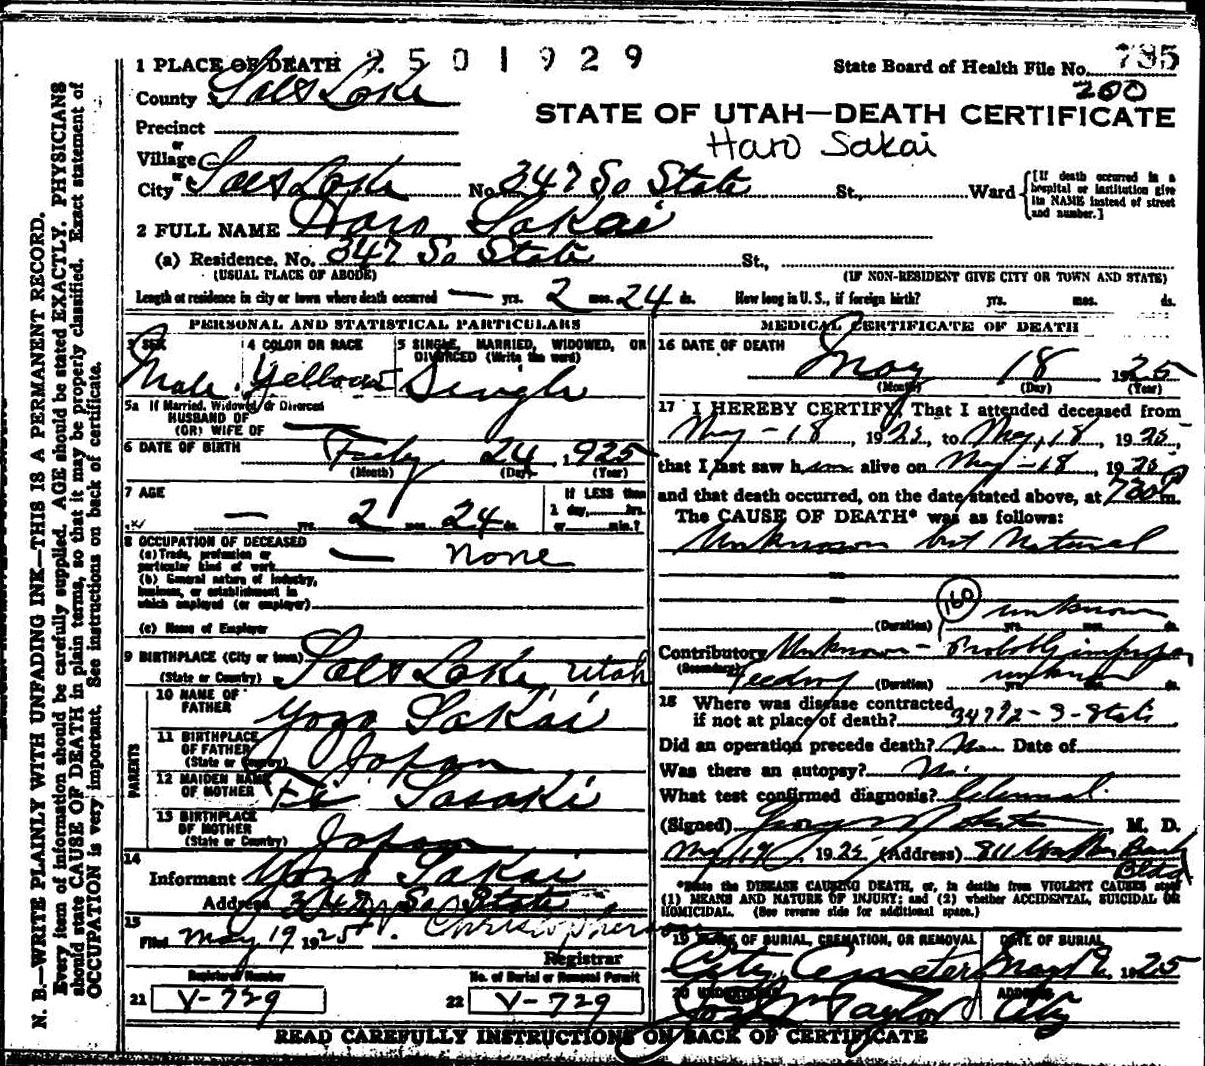 1 PLACE OF DEATH 2501929
State Board of Health File No. 785
200
County Salt Lake
STATE OF UTAH—DEATH CERTIFICATE
Precinct
Haro Sakai
or
Village
or
City Salt Lake No. 347 So State St., Ward
[If death occurred in a hospital or institution give its NAME instead of street and number.]
2 FULL NAME Haro Sakai
(a) Residence. No. 347 So State St.,
(USUAL PLACE OF ABODE) (IF NON-RESIDENT GIVE CITY OR TOWN AND STATE)
Length of residence in city or town where death occurred — yrs. 2 mos. 24 ds. How long in U. S., if foreign birth? yrs. mos. ds.
PERSONAL AND STATISTICAL PARTICULARS
3 SEX 4 COLOR OR RACE 5 SINGLE, MARRIED, WIDOWED, OR DIVORCED (Write the word)
Male Yellow Single
5a If Married, Widowed, or Divorced
HUSBAND OF
(OR) WIFE OF —
6 DATE OF BIRTH Feby 24 1925
(Month) (Day) (Year)
7 AGE
If LESS than
1 day, hrs.
or min.?
— yrs. 2 mos. 24 ds.
8 OCCUPATION OF DECEASED
(a) Trade, profession or
particular kind of work — none
(b) General nature of industry,
business, or establishment in
which employed (or employer)
(c) Name of Employer
9 BIRTHPLACE (City or town) Salt Lake Utah
(State or Country)
PARENTS
10 NAME OF
FATHER Yozo Sakai
11 BIRTHPLACE
OF FATHER
(State or Country) Japan
12 MAIDEN NAME
OF MOTHER Sasaki
13 BIRTHPLACE
OF MOTHER
(State or Country) Japan
14
Informant Yozo Sakai
Address 347 So State
15
Filed May 19 1925
Registrar
Registered Number No. of Burial or Removal Permit
21 V-729 22 V-729
MEDICAL CERTIFICATE OF DEATH
16 DATE OF DEATH
May 18 1925
(Month) (Day) (Year)
17 I HEREBY CERTIFY, That I attended deceased from
May-18, 1925, to May, 18, 1925,
that I last saw h alive on May-18, 1925
and that death occurred, on the date stated above, at 730 P m.
The CAUSE OF DEATH* was as follows:
Unknown but Natural
160 unknown
(Duration) yrs. mos. ds.
Contributory Unknown - Probably improper
(Secondary) feeding (Duration) unknown yrs. mos. ds.
18 Where was disease contracted
if not at place of death? 347 1/2 - S - State
Did an operation precede death? No Date of
Was there an autopsy? No.
What test confirmed diagnosis?
(Signed) M. D.
May 19, 1925 (Address) 811 Walker Bank
Bldg
*State the DISEASE CAUSING DEATH, or, in deaths from VIOLENT CAUSES state
(1) MEANS AND NATURE OF INJURY; and (2) whether ACCIDENTAL, SUICIDAL OR
HOMICIDAL. (See reverse side for additional space.)
19 PLACE OF BURIAL, CREMATION, OR REMOVAL DATE OF BURIAL
City Cemetery May 1925
20 UNDERTAKER ADDRESS
Taylor City
READ CAREFULLY INSTRUCTIONS ON BACK OF CERTIFICATE
N. B.—WRITE PLAINLY WITH UNFADING INK—THIS IS A PERMANENT RECORD.
Every item of information should be carefully supplied. AGE should be stated EXACTLY. PHYSICIANS
should state CAUSE OF DEATH in plain terms, so that it may be properly classified. Exact statement of
OCCUPATION is very important. See instructions on back of certificate.